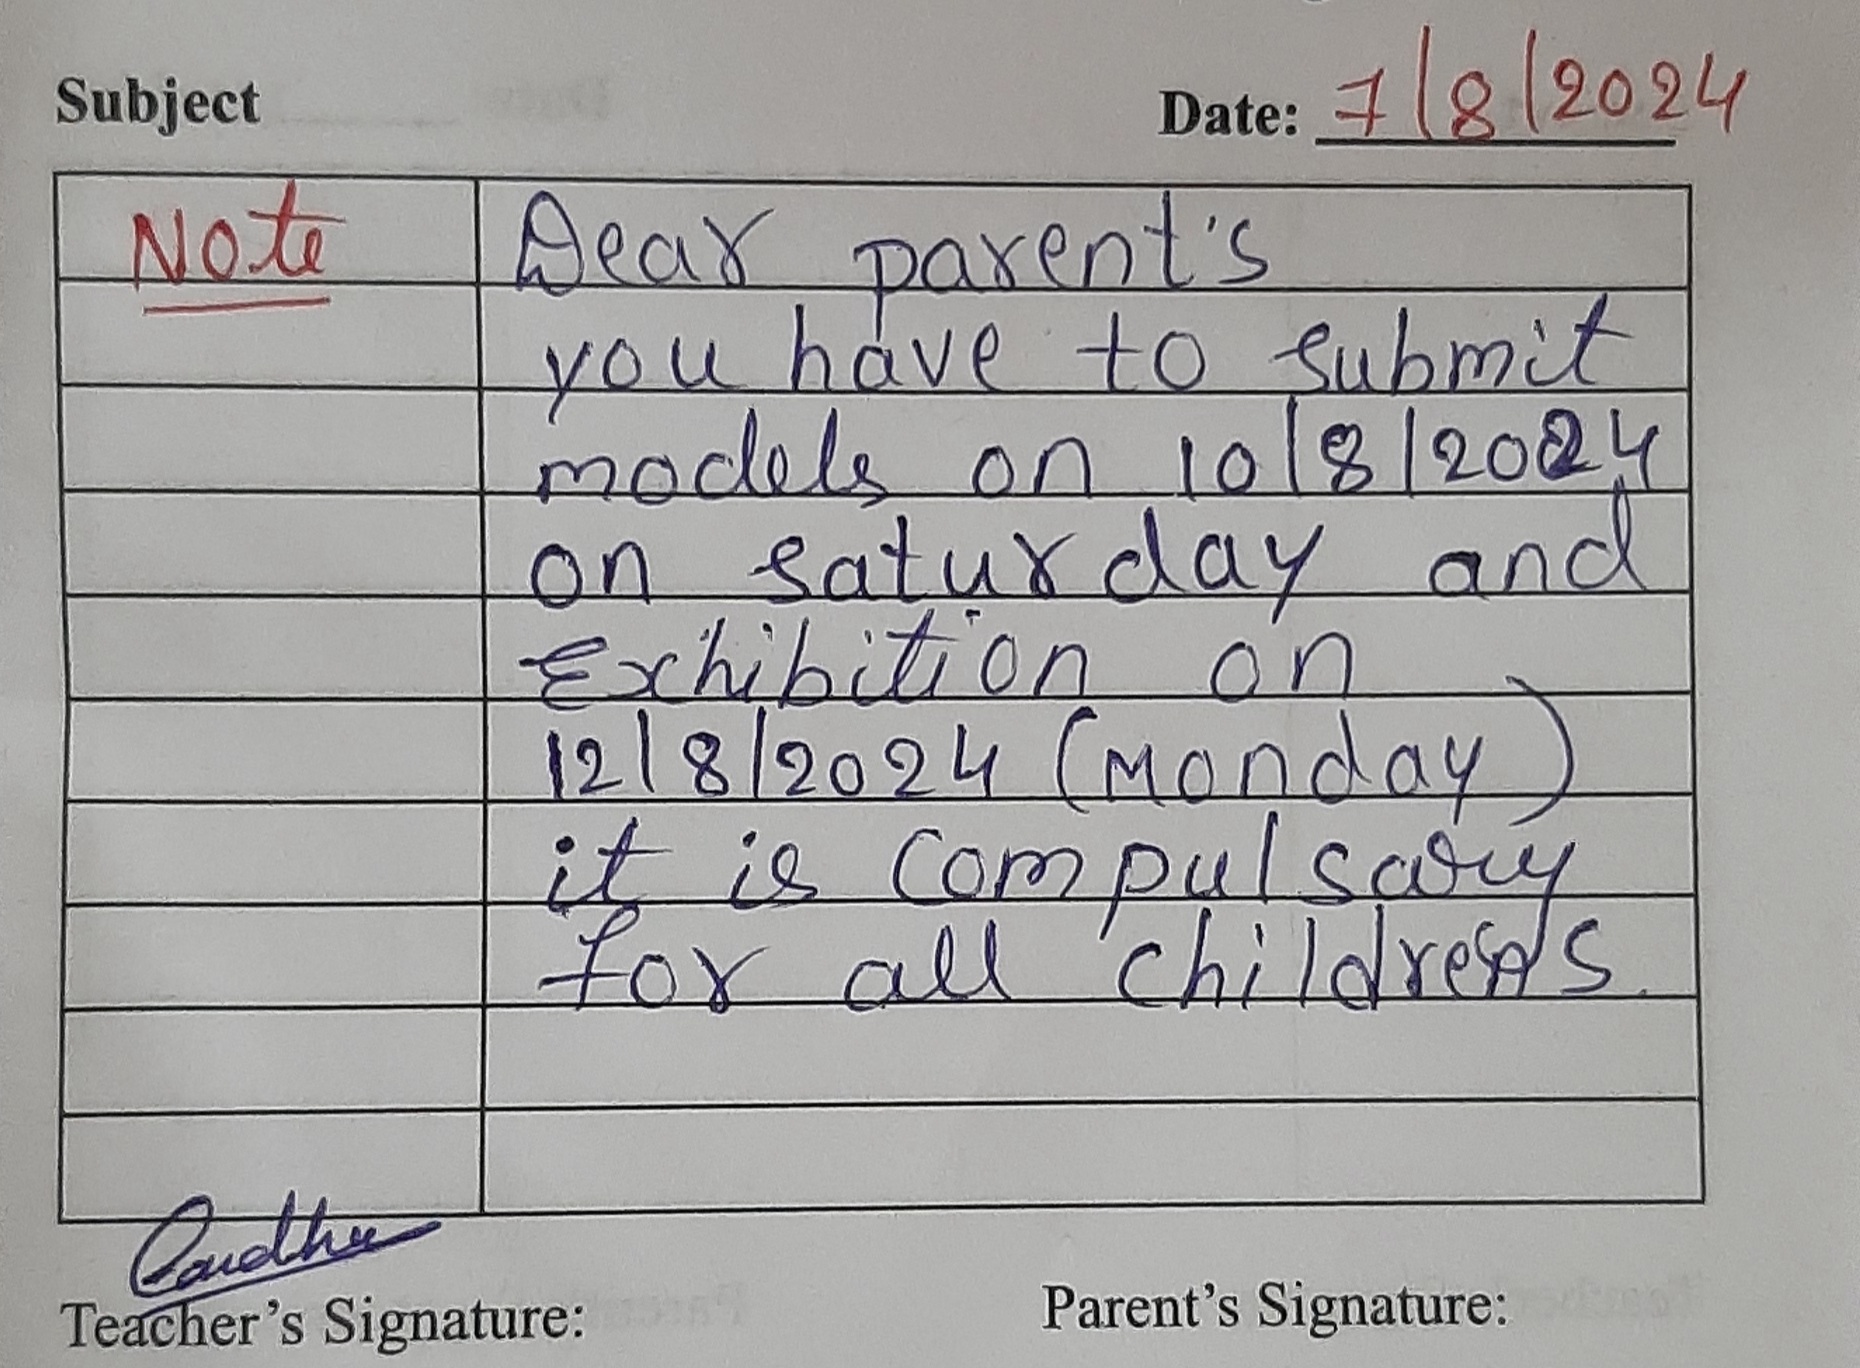 Subject Date: 7/8/2024
Note Dear parent's
you have to submit
models on 10/8/2024
on saturday and
Exhibition on
12/8/2024 (Monday)
it is compulsary
for all childrens.
Teacher's Signature: Parent's Signature: